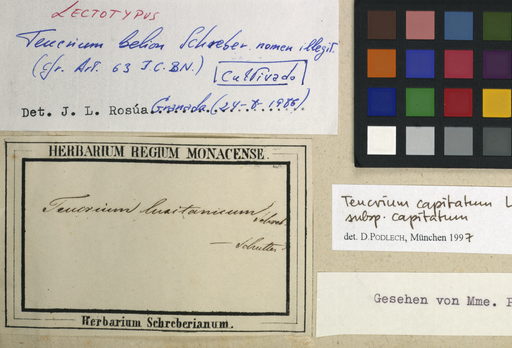 LECTOTYPUS
Teucrium belion Schreber nomen illegit.
(cfr. Art. 63 I.C.B.N.) Cultivado
Det. J. L. Rosúa Granada (24-X-1986)
HERBARIUM REGIUM MONACENSE.
Teucrium lusitanicum Schreb.
Herbarium Schreberianum.
Teucrium capitatum L
subsp. capitatum
det. D. PODLECH, München 1997
Gesehen von Mme.